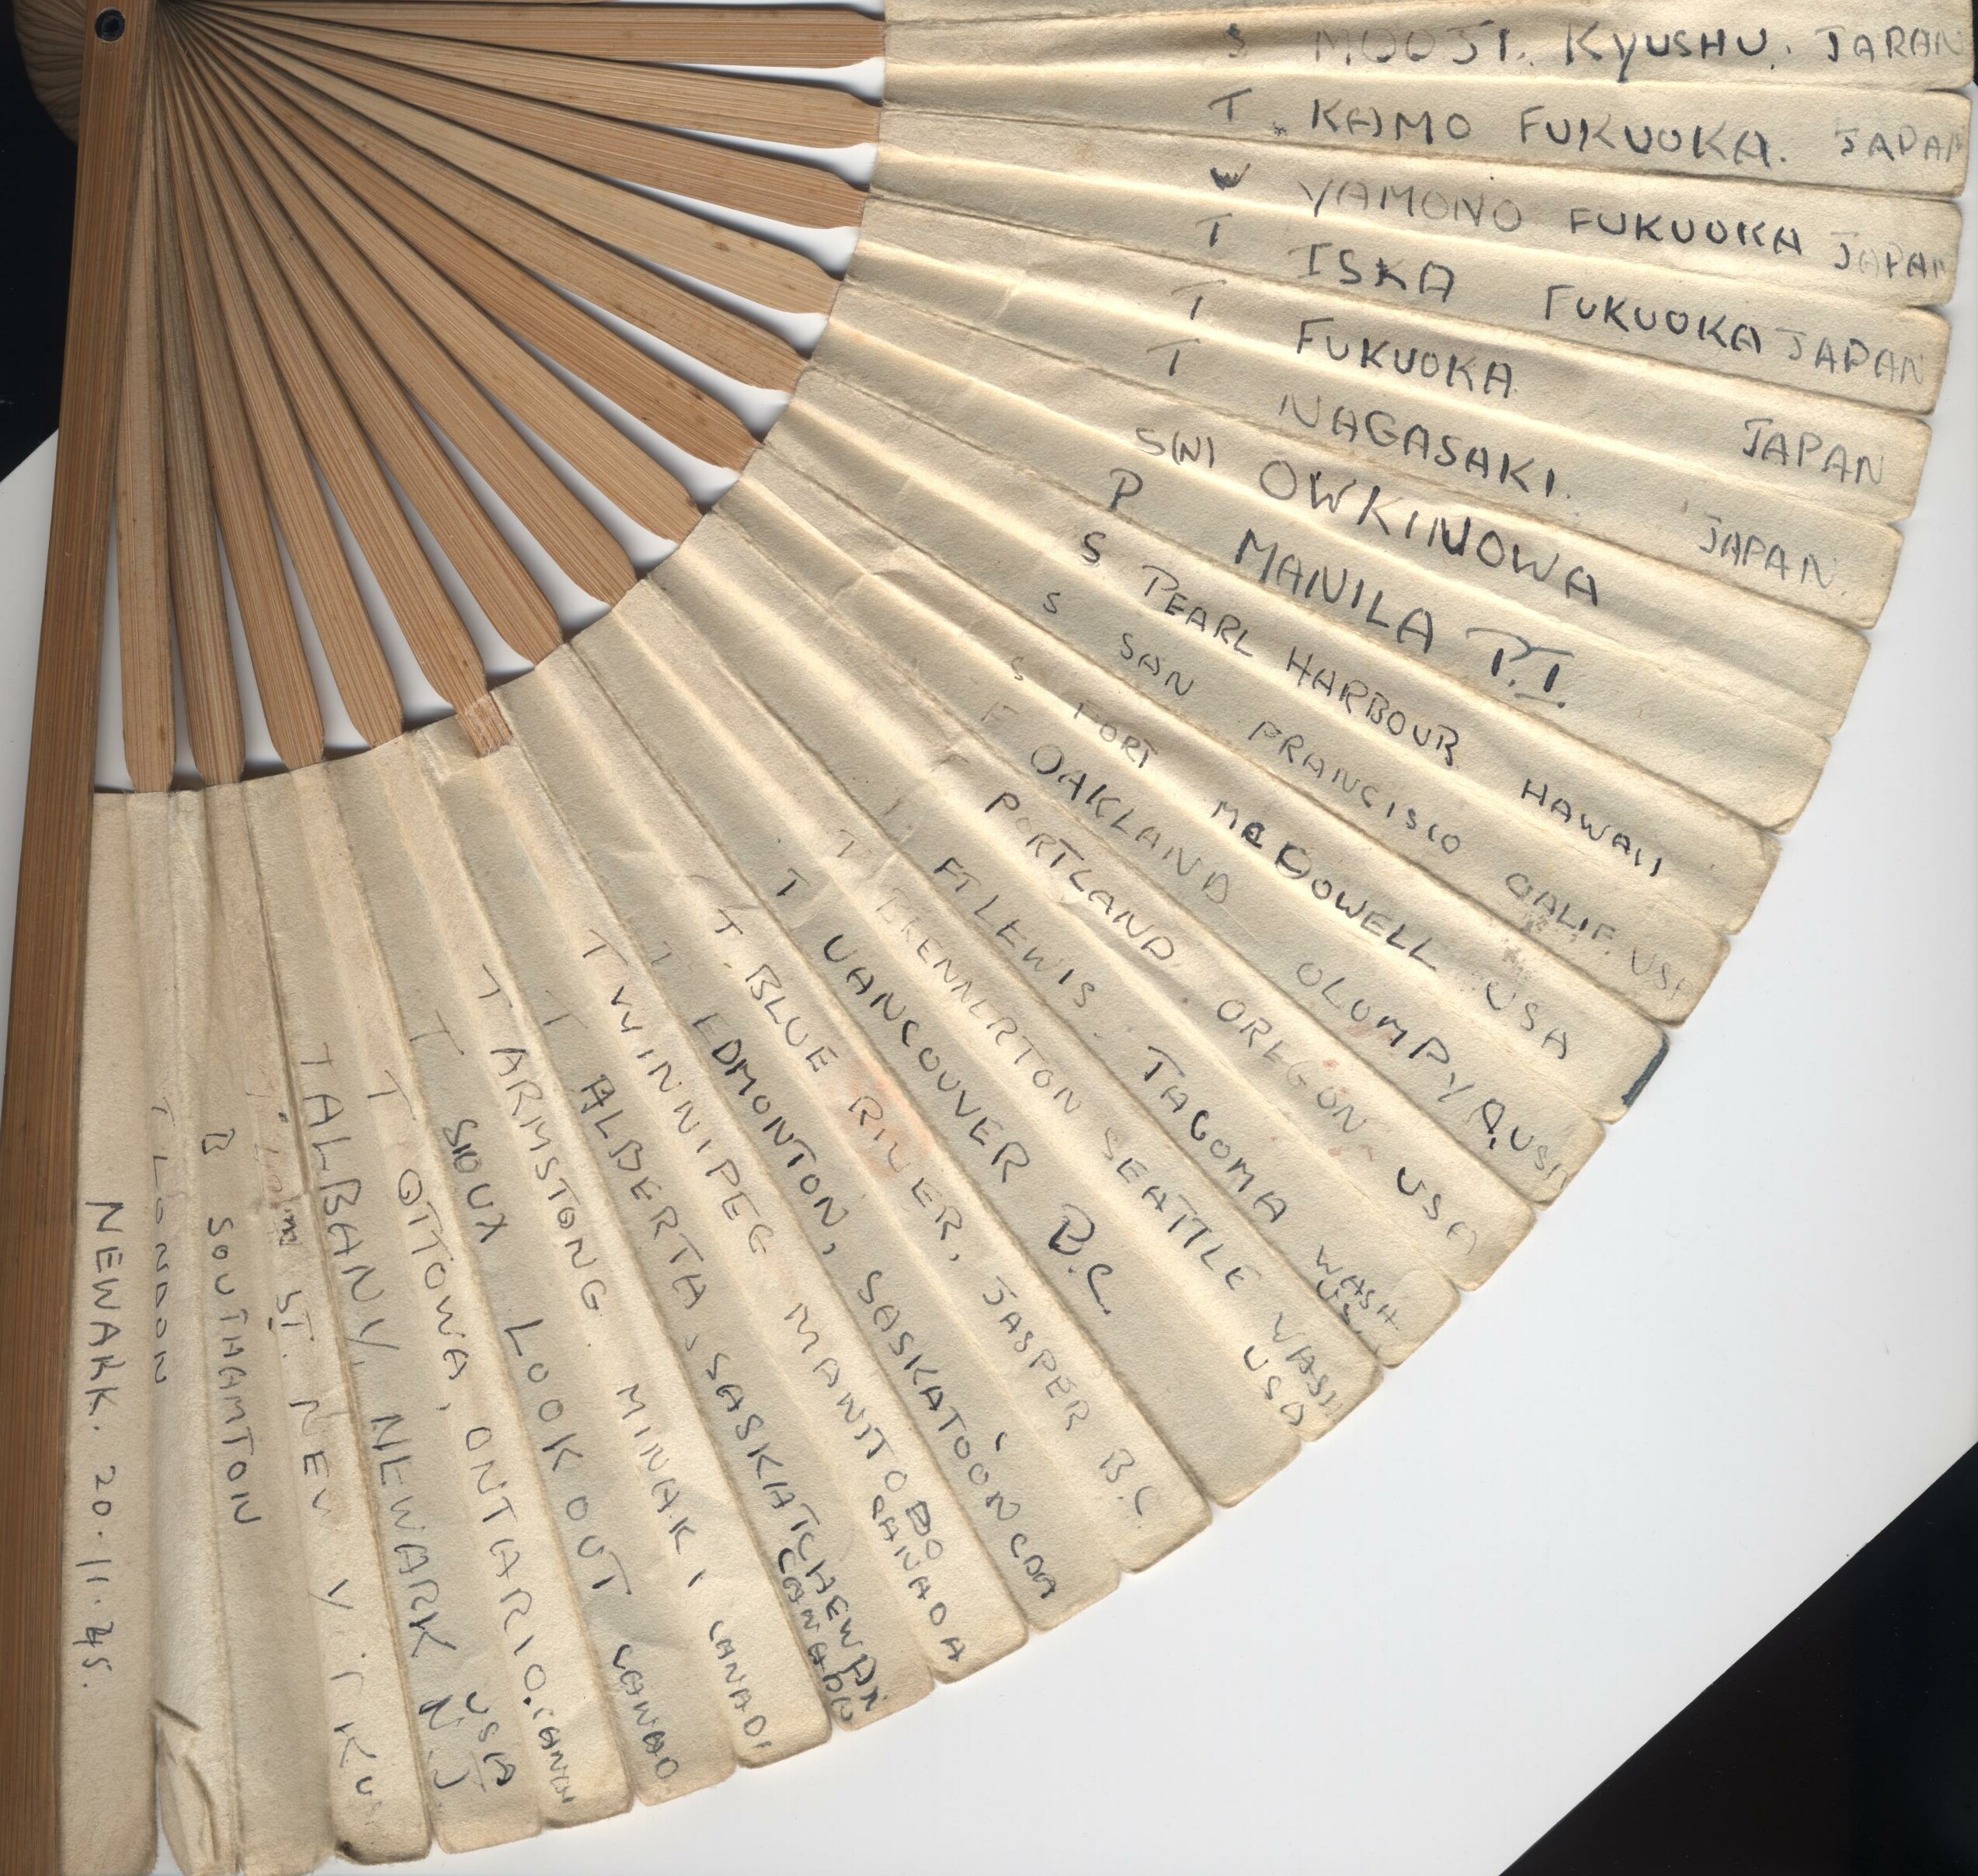 S MOOJI. KYUSHU. JAPAN
T. KAMO FUKUOKA. JAPAN
W YAMONO FUKUOKA JAPAN
T ISKA FUKUOKA JAPAN
T FUKUOKA JAPAN
T NAGASAKI. JAPAN.
S(N) OWKINOWA
P MANILA P.I.
S PEARL HARBOUR HAWAII
S SAN FRANCISCO CALIF. USA
S FORT McDOWELL USA
F OAKLAND OLUMPYA, USA
T PORTLAND OREGON USA
T. FT LEWIS. TACOMA WASH. USA
T BRENNERTON SEATTLE WASH USA
T VANCOUVER B.C.
T. BLUE RIVER, JASPER B.C.
T EDMONTON, SASKATOON CDA
T WINNIPEG MANITOBO CANADA
T ALBERTA, SASKATCHEWAN CANADA
T ARMSTONG. MINAKI CANADA
T SIOUX LOOK OUT CANAD
T OTTOWA, ONTARIO. CANADA
T ALBANY, NEWARK N.J. USA
ST. NEW YORK US
B SOUTHAMTON
T LONDON
NEWARK. 20.11.45.